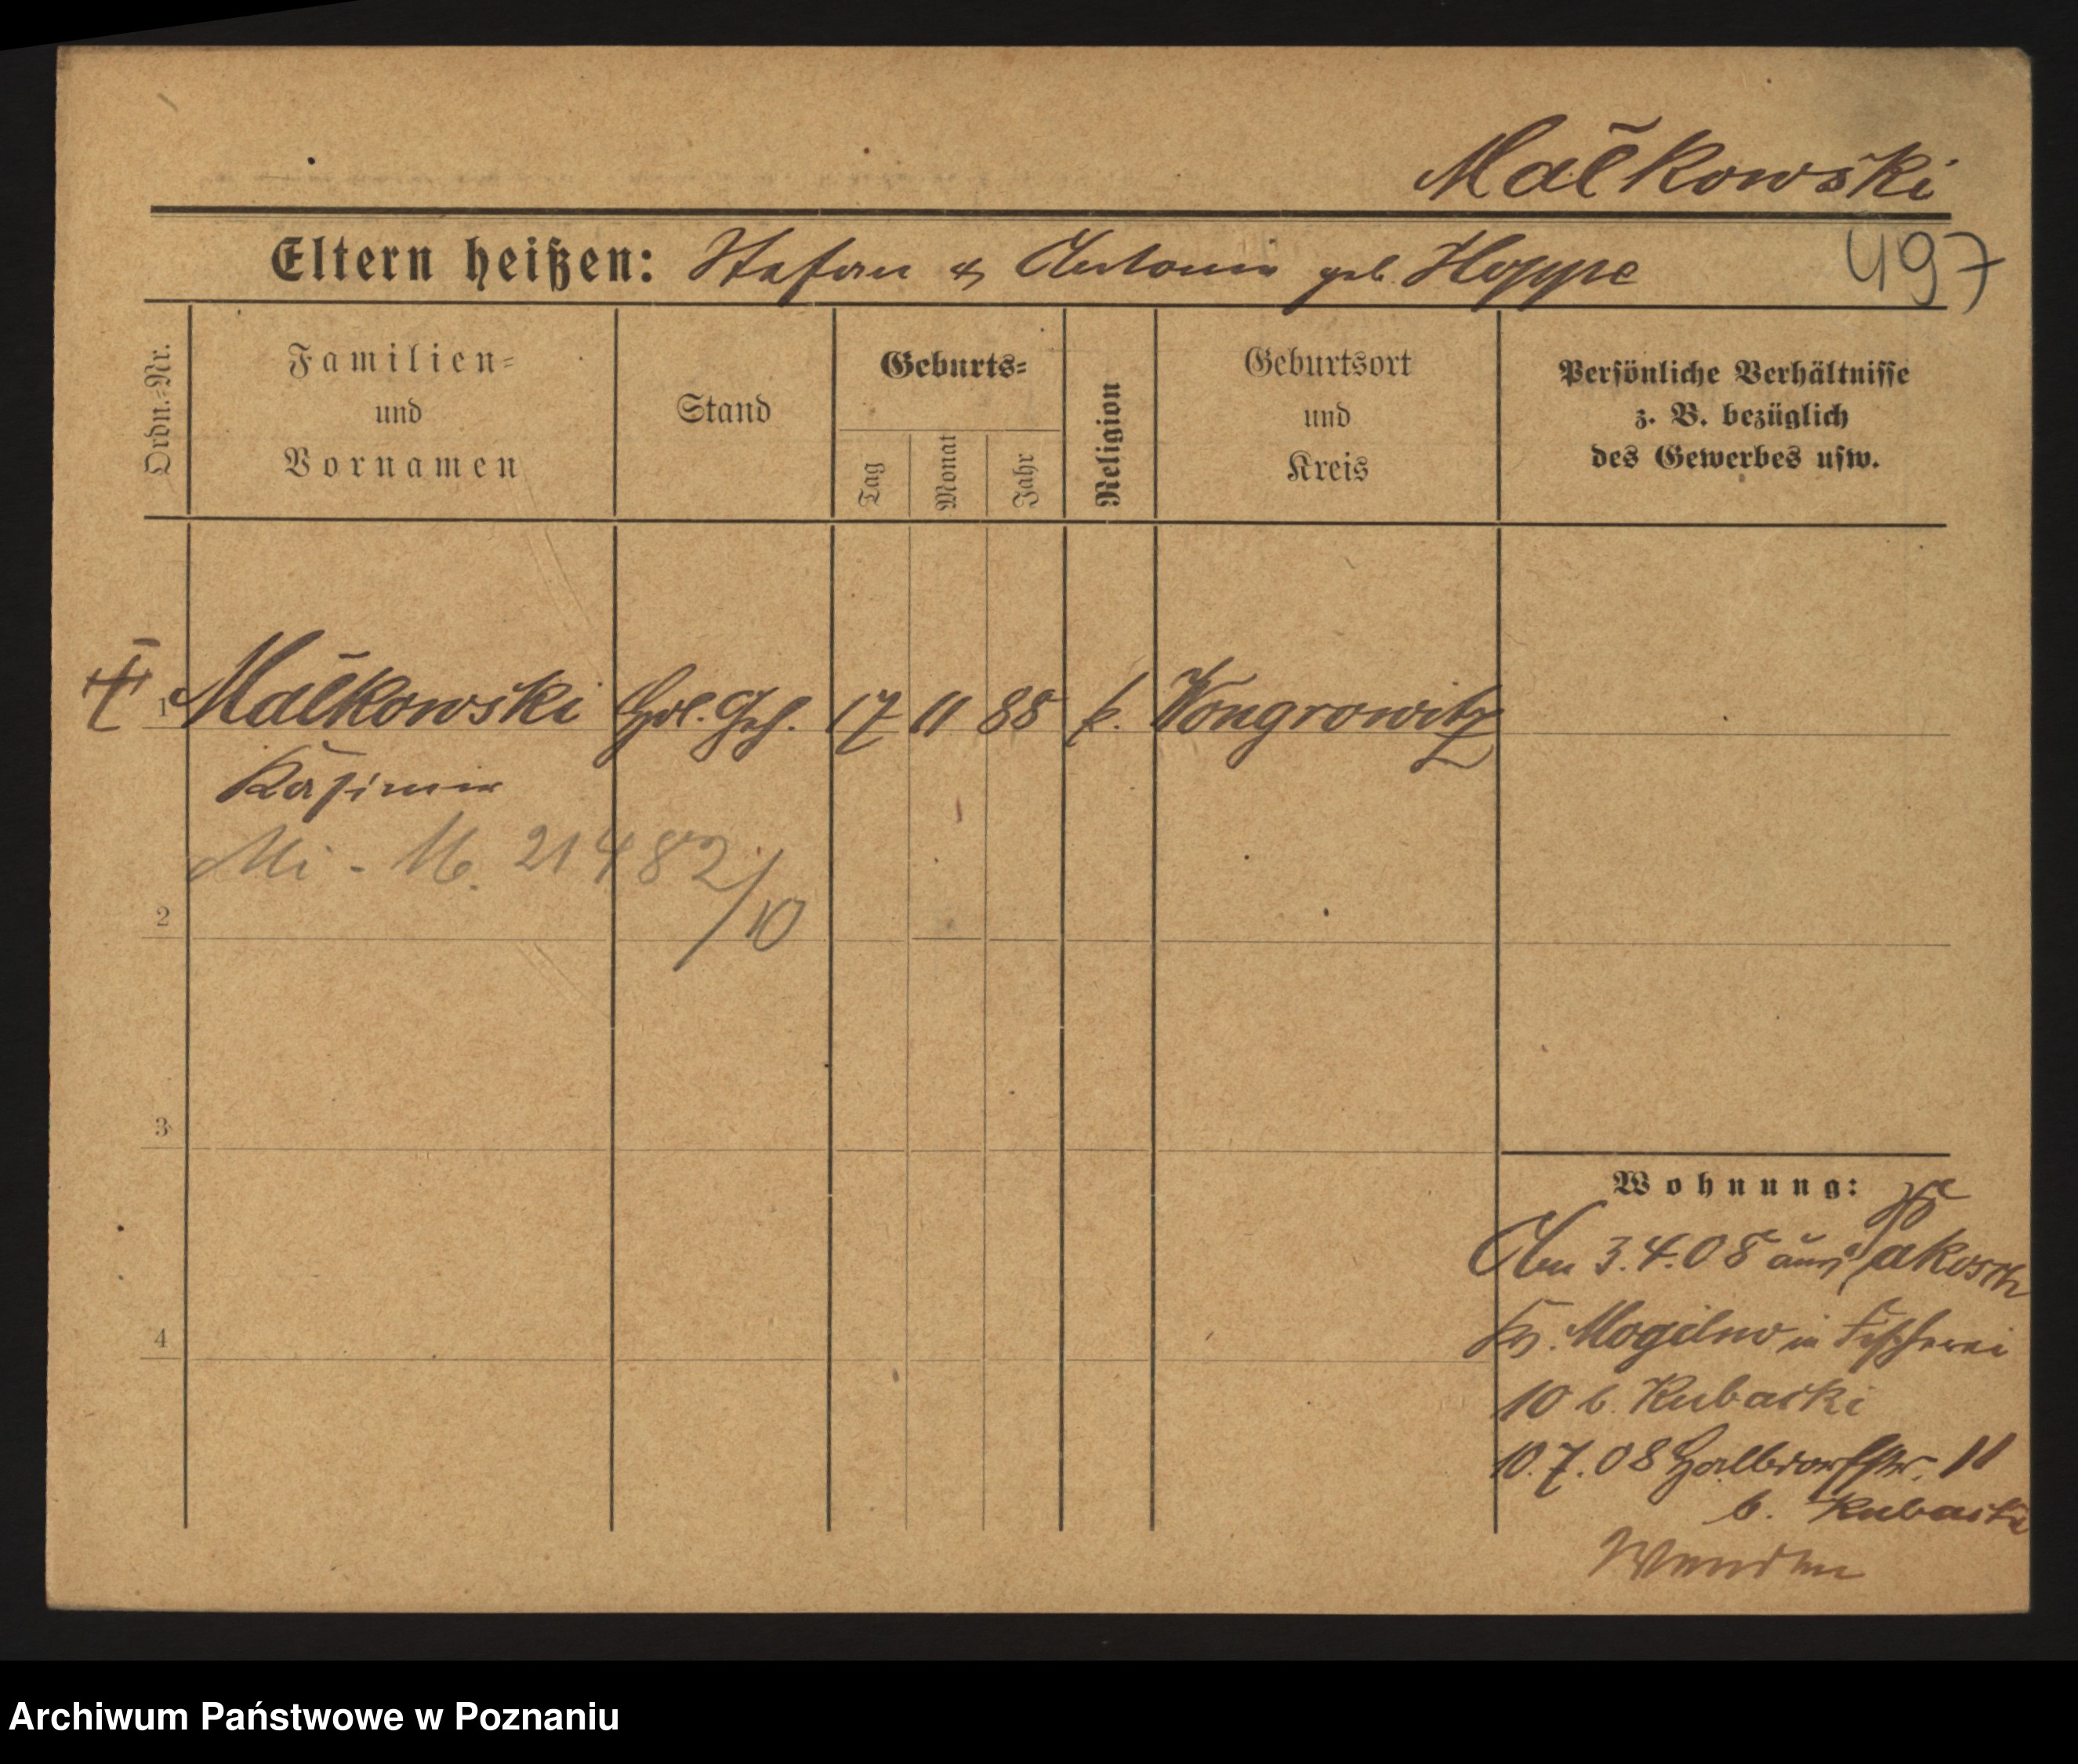 Małkowski
Eltern heißen: Stefan & Antonie geb. Hoppe
497
Ordn.-Nr.
Familien-
und
Vornamen
Stand
Geburts-
Tag
Monat
Jahr
Religion
Geburtsort
und
Kreis
Persönliche Verhältnisse
z. B. bezüglich
des Gewerbes usw.
1 Małkowski 17 11 88 k. Wongrowitz
Kasimir
Mi - M. 21482/10
2
3
4
Wohnung:
Am 3.4.08 aus Jakosch
Kr. Mogilno in Fischerei
10 b. Kubacki
10.7.08 Halbdorfstr. 11
b. Kubacki
Archiwum Państwowe w Poznaniu